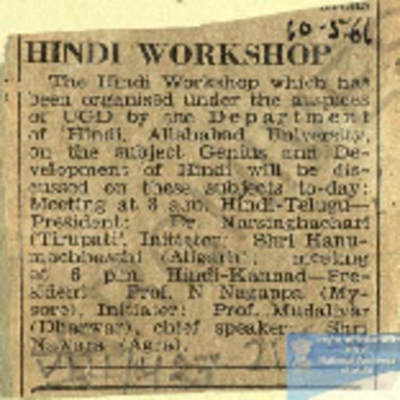 10-5-66
HINDI WORKSHOP
The Hindi Workshop which has
been organised under the auspices
of UGD by the Department
of Hindi, Allahabad University,
on the subject Genius and De-
velopment of Hindi will be dis-
cussed on these subjects to-day:
Meeting at 8 a.m. Hindi-Telugu—
President: Dr. Narsinghachari
(Tirupati). Initiator: Shri Hanu-
machhasthi (Aligarh); meeting
at 6 p.m. Hindi-Kannad—Pre-
sident: Prof. N Nagappa (My-
sore). Initiator: Prof. Mudaliyar
(Dharwar), chief speaker: Shri
(Agra).